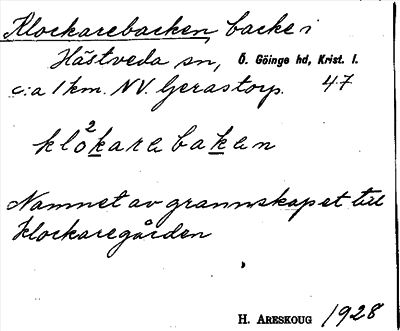 Klockarebacken, backe i
Hästveda sn, Ö. Göinge hd, Krist. l.
c:a 1 km. NV. Gerastorp. 47
klo²karebaken
Namnet av grannskapet till
klockaregården
H. ARESKOUG 1928